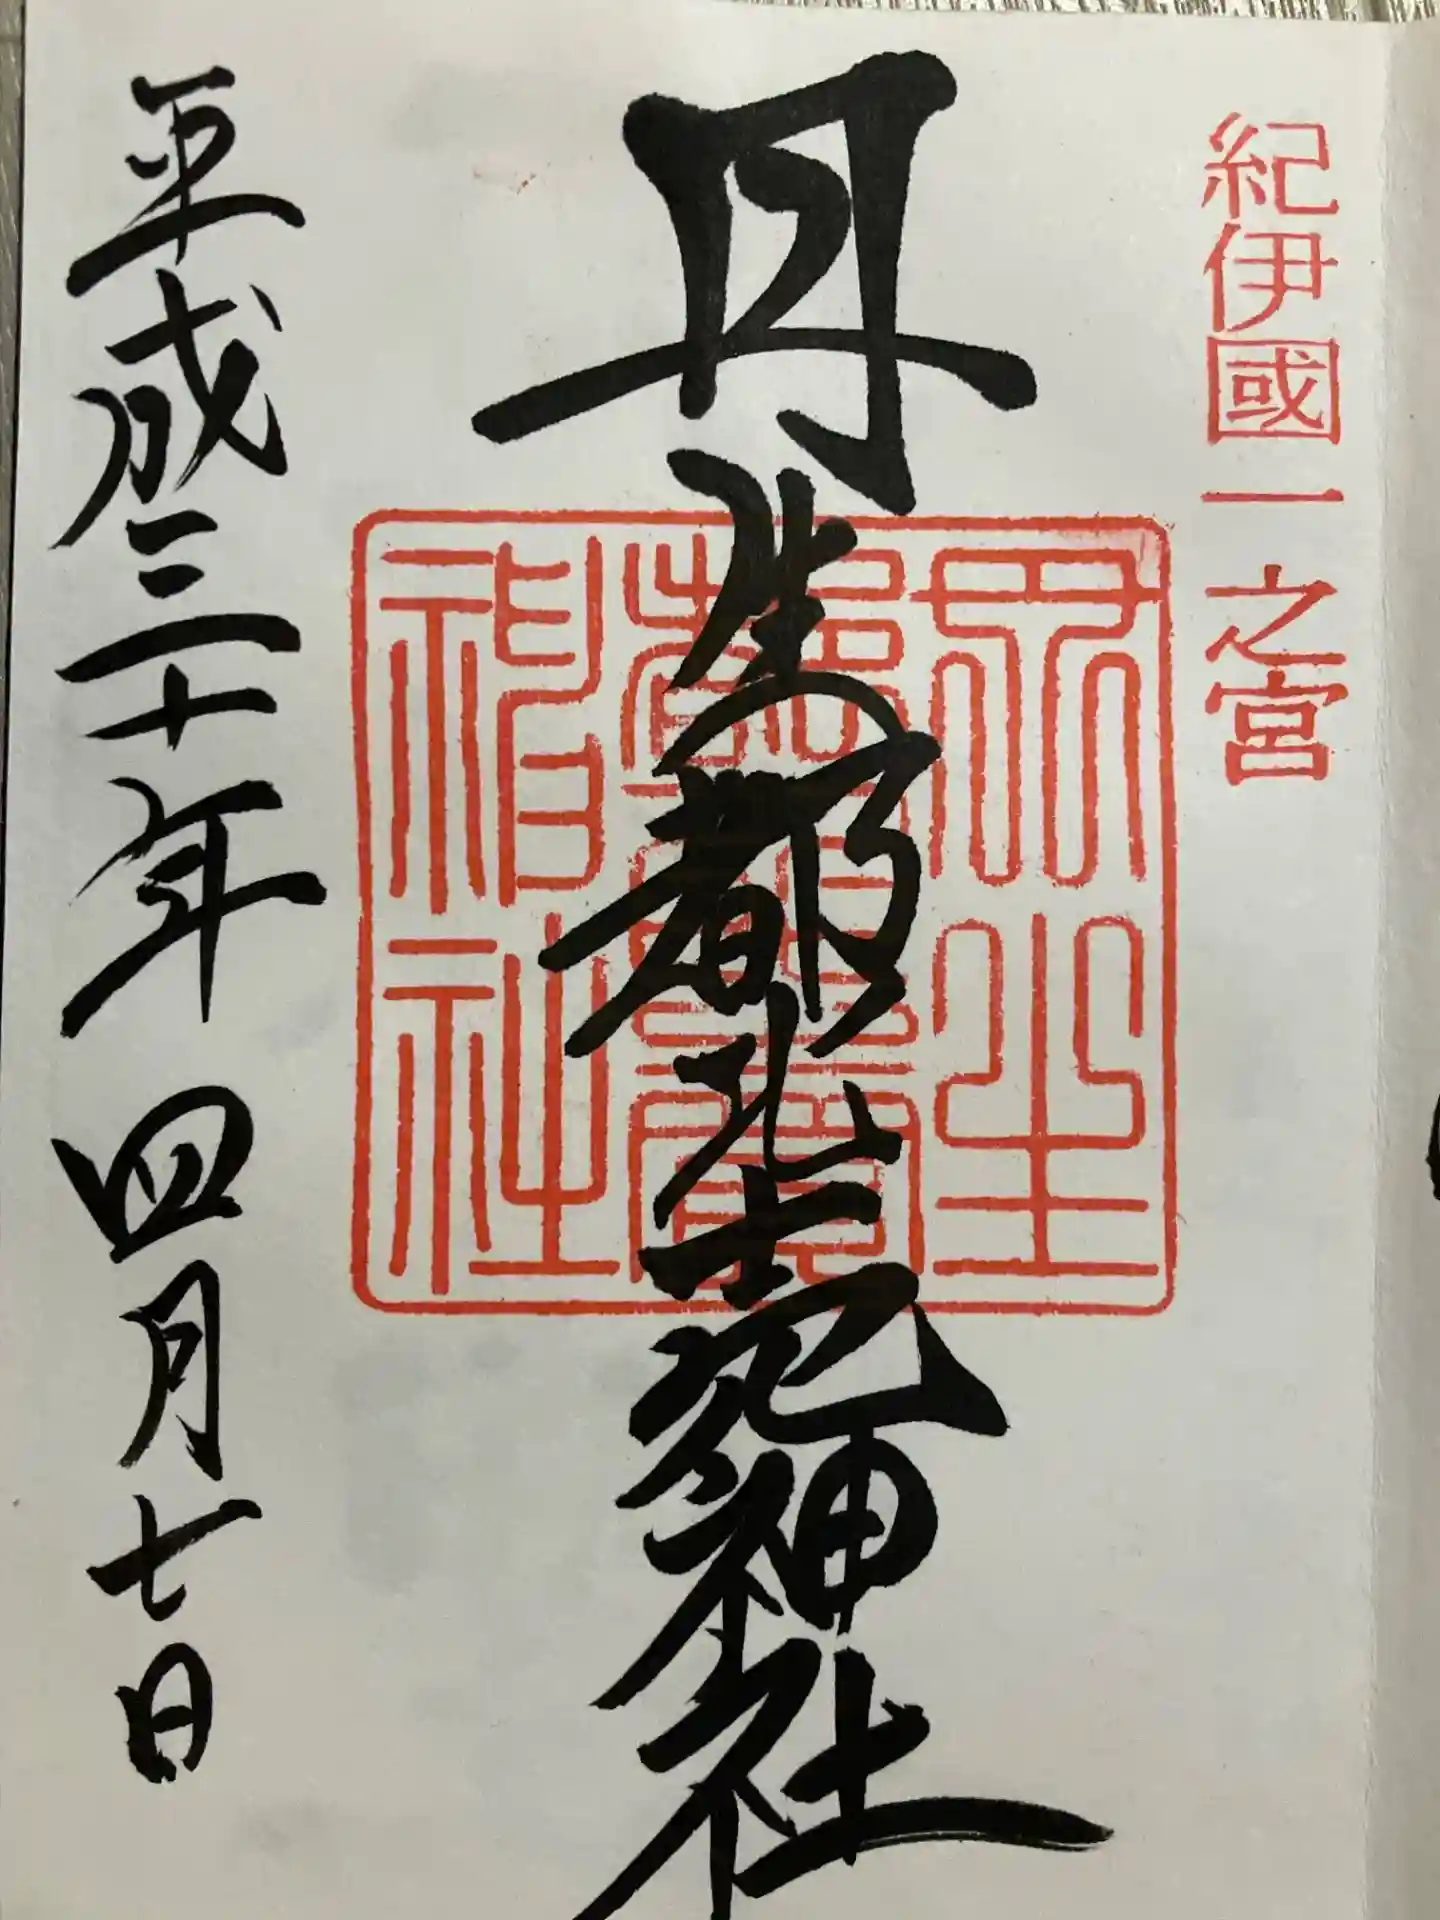 紀伊國一之宮
丹生都比売神社
丹生
都比賣
神社
平成三十年四月七日